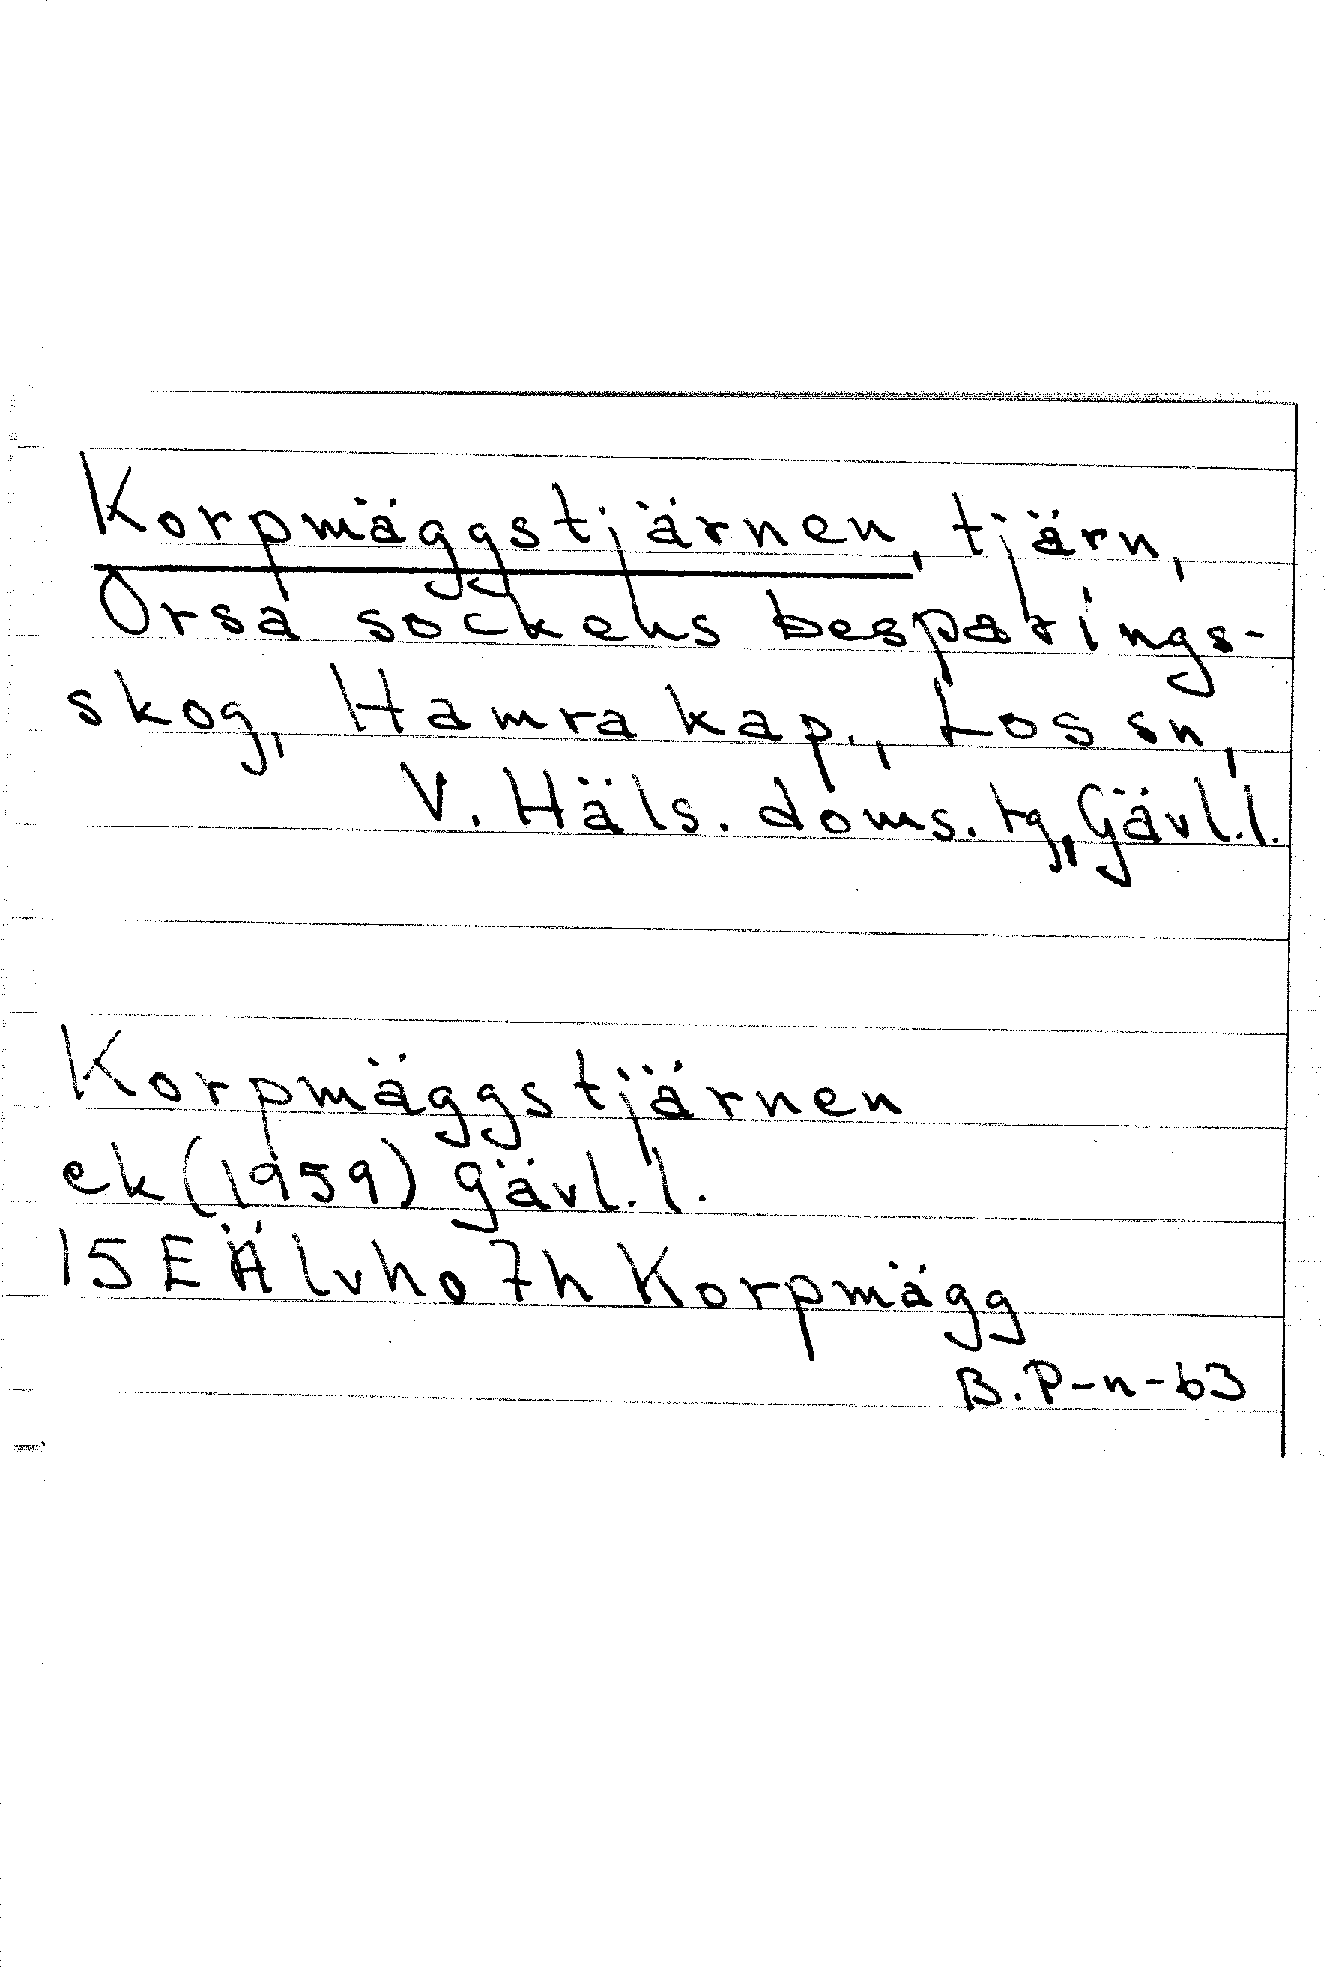 Korpmäggstjärnen, tjärn,
Orsa sockens besparings-
skog, Hamra kap., Los sn,
V. Häls. doms. tg, Gävl.l.
Korpmäggstjärnen
ek (1959) Gävl.l.
15 E Älvho 7h Korpmägg
B.P-n-63